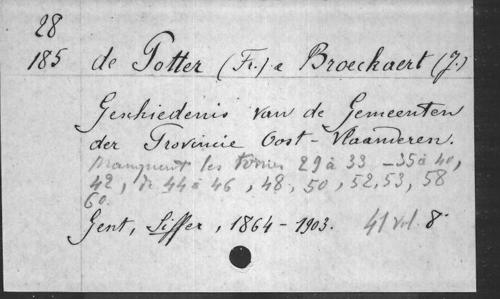 28
185 de Potter (Fr.) & Broeckaert (J.)
Geschiedenis van de Gemeenten
der Provincie Oost-Vlaanderen.
Manquent les tomes 29 à 33 - 35 à 40,
42, de 44 à 46, 48, 50, 52, 53, 58
60.
Gent, Siffer, 1864-1903. 41 vol. 8°